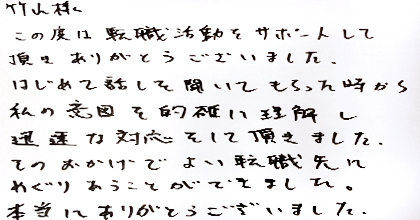 竹山様
この度は転職活動をサポートして
頂きありがとうございました。
はじめて話しを聞いてもらった時から
私の意図を的確に理解し
迅速な対応をして頂きました。
そのおかげでよい転職先に
めぐりあうことができました。
本当にありがとうございました。